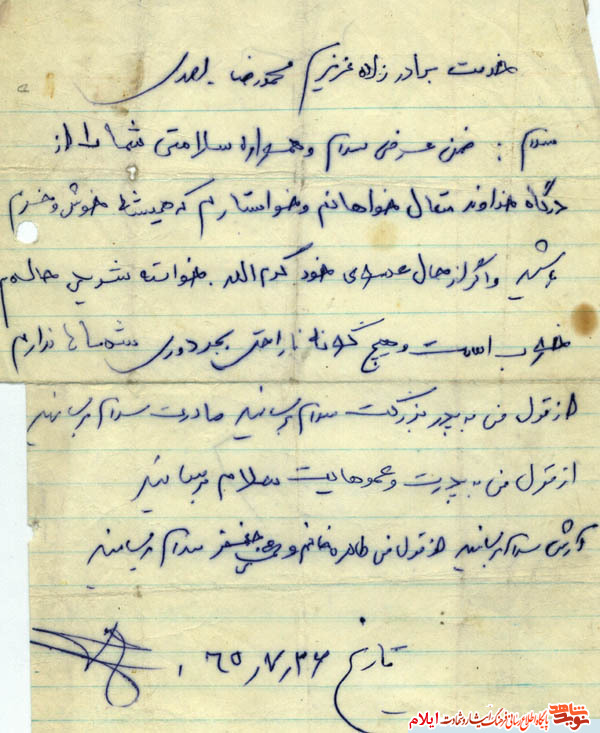 خدمت برادرزاده عزیزم محمدرضا
سلام : ضمن عرض سلام و همواره سلامتی شما را از
درگاه خداوند متعال خواهانم و خواستارم که همیشه خوش و خرم
باشید و اگر از حال عموی خود کرم الله خواسته حالم
خوب است و هیچ گونه ناراحتی بجز دوری شماها ندارم
از قول من به پدر بزرگت سلام برسانید مادرت سلام برسانید
از قول من به پدرت و عموهایت سلام برسانید
سلام برسانید از قول من طاهره خانم و سلام برسانید
تاریخ ۶۵٫۷٫۲۶
نوید شاهد پایگاه اطلاع رسانی فرهنگ ایثار و شهادت ایلام